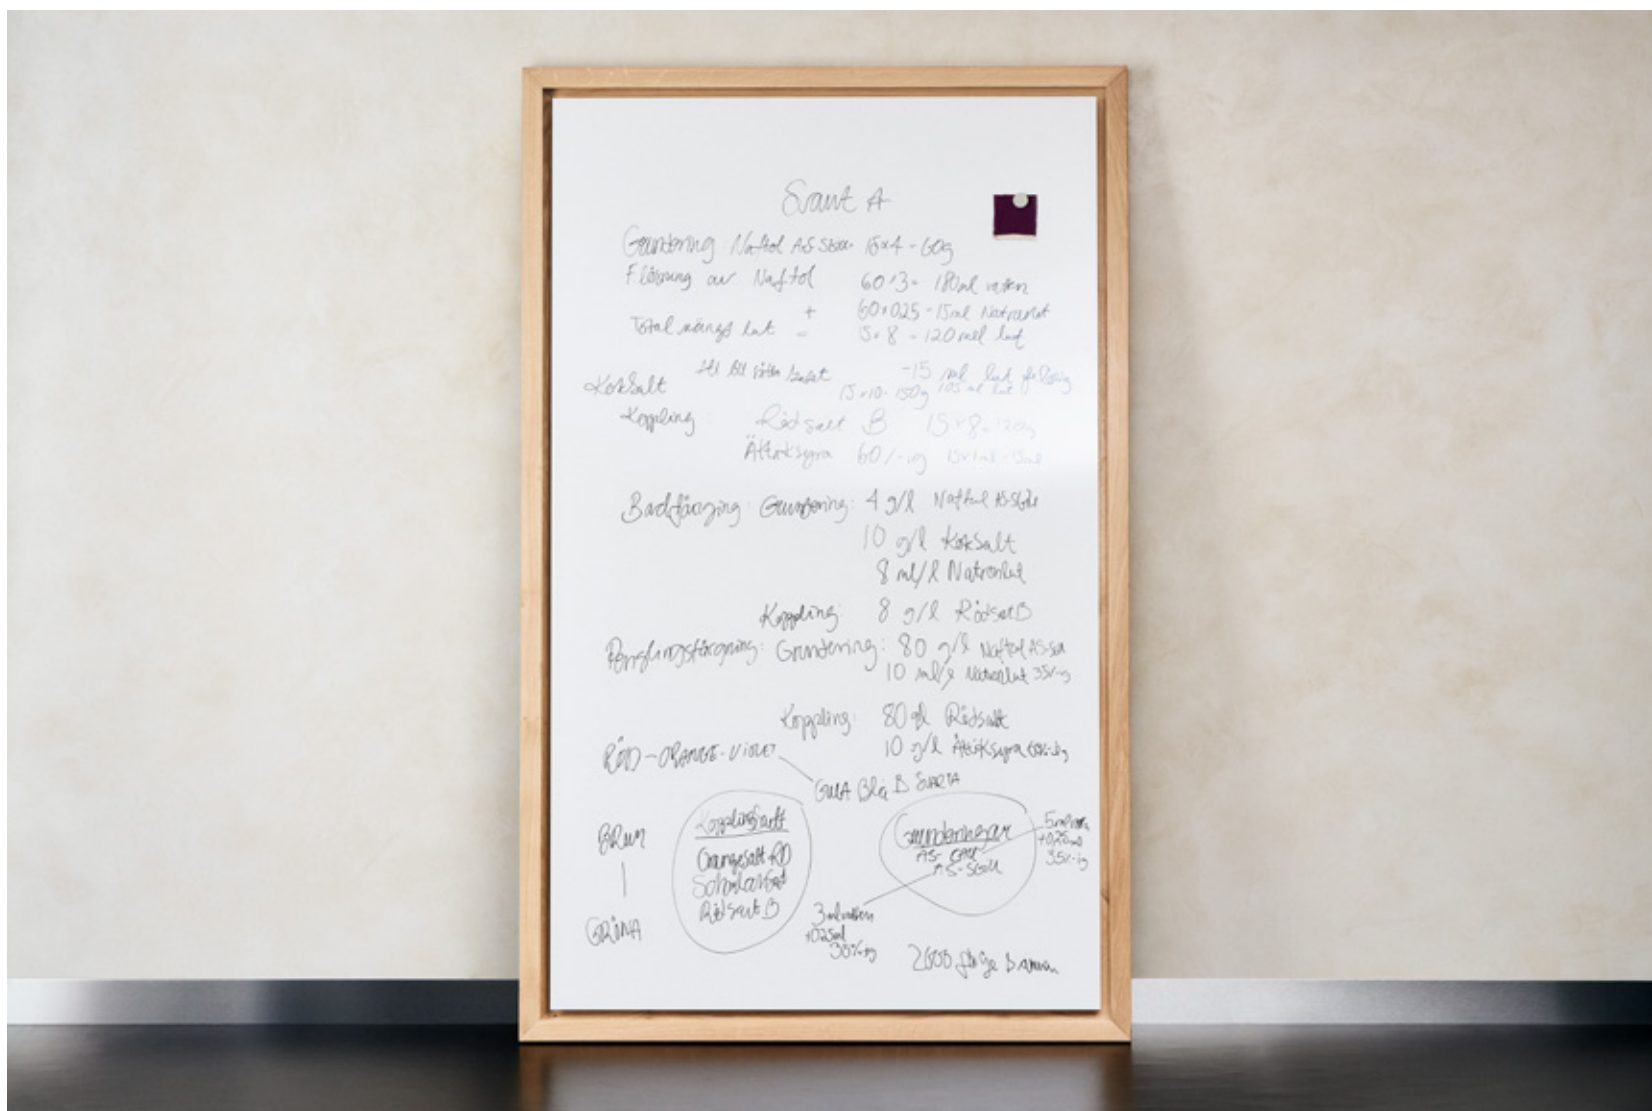 Svart A
Grundering Naftol AS 15x4 = 60g
lösning av Naftol 60·3 = 180ml vatten
+ 60·0,25 = 15ml Natronlut
Total mängd lut = 15·8 = 120 ml lut
-15 ml lut
Koksalt 15·10 = 150g 105 ml lut
Koppling: Rödsalt B 15x8 = 120g
Ättiksyra 60%-ig 15x1ml = 15ml
Badfärgning: Grundering: 4 g/l Naftol AS-SGW
10 g/l Koksalt
8 ml/l Natronlut
Koppling: 8 g/l Rödsalt B
Penslingsfärgning: Grundering: 80 g/l Naftol AS-
10 ml/l Natronlut 35%-ig
Koppling: 80 g/l Rödsalt
10 g/l Ättiksyra 60%-ig
RÖD - ORANGE - VIOLET
GULA Blå B SVARTA
BRUN
GRÖNA
Kopplingsalt
Orangesalt RD
Rödsalt B
Grunderingar
AS-
AS-SGW
5 ml vatten
+0,25 ml
35%-ig
3 ml vatten
+0,25 ml
35%-ig